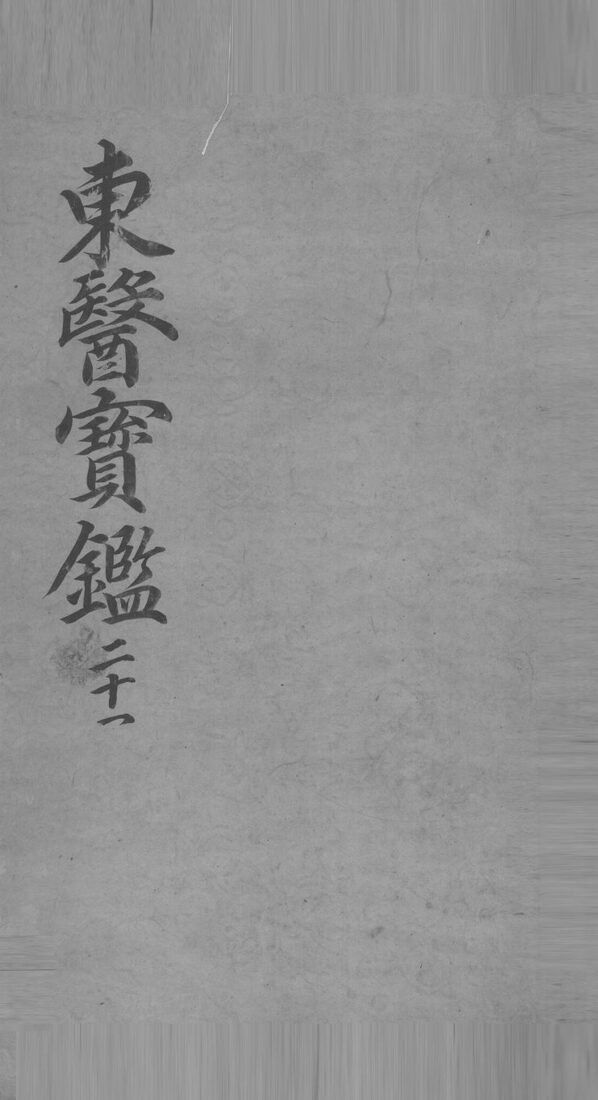 東醫寶鑑二十一